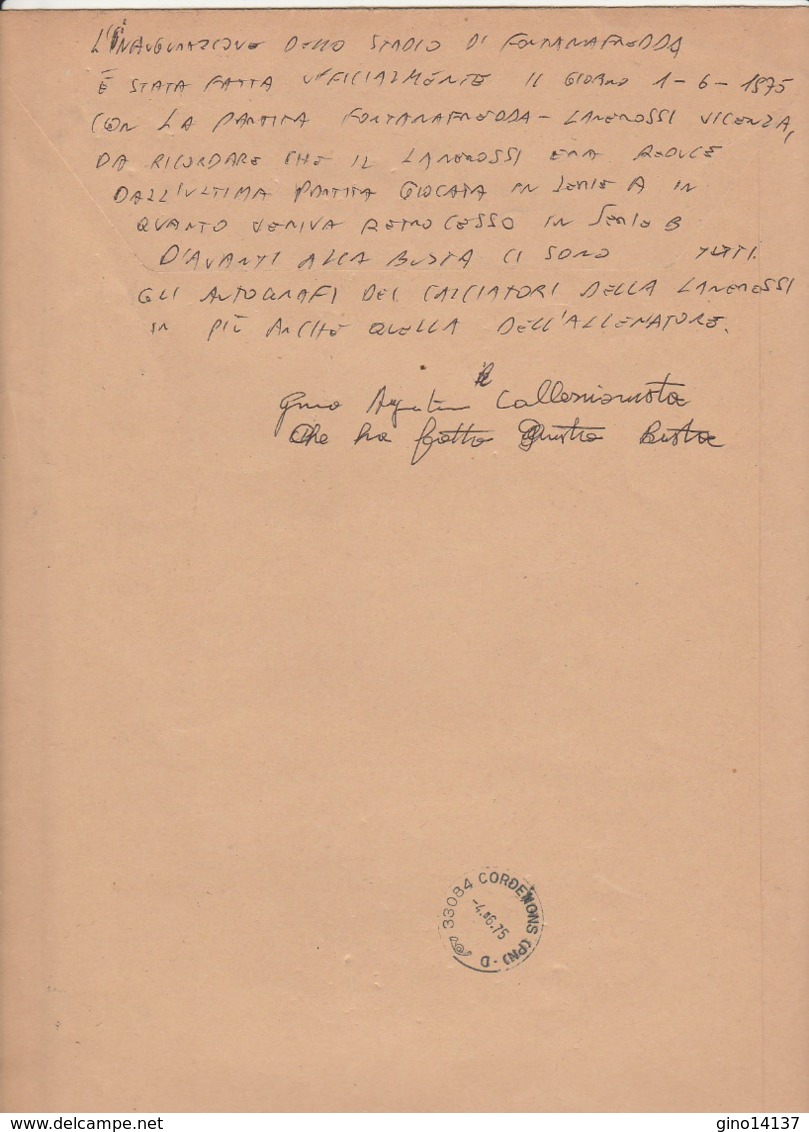 L'INAUGURAZIONE DELLO STADIO DI FONTANAFREDDA
È STATA FATTA UFFICIALMENTE IL GIORNO 1-6-1975
CON LA PARTITA FONTANAFREDDA - LANEROSSI VICENZA,
DA RICORDARE CHE IL LANEROSSI ERA REDUCE
DALL'ULTIMA PARTITA GIOCATA IN SERIE A IN
QUANTO VENIVA RETROCESSO IN SERIE B
D'AVANTI ALLA BUSTA CI SONO TUTTI
GLI AUTOGRAFI DEI CALCIATORI DELLA LANEROSSI
IN PIÙ ANCHE QUELLA DELL'ALLENATORE.
il
Collezionista
Che ha fatto Questa Busta
33084 CORDENONS (PN) - D
-4.06.75
www.delcampe.net
gino14137